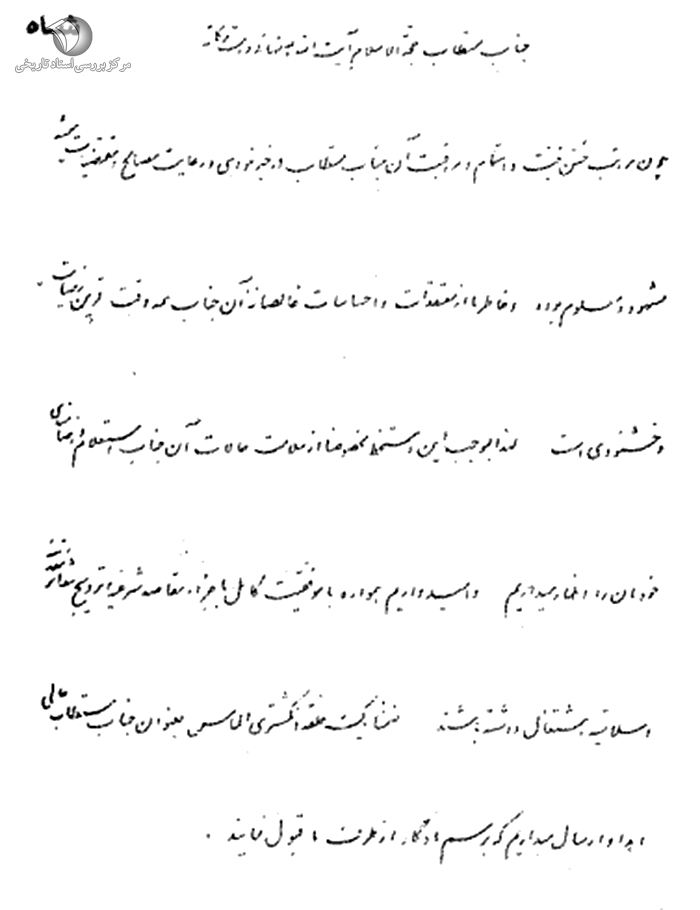 مرکز بررسی اسناد تاریخی
جناب مستطاب حجة الاسلام آیت الله
چون مراتب حسن نیت و اهتمام و مراقبت آن جناب مستطاب در خیرخواهی و رعایت مصالح و مقتضیات همیشه
مشهود و معلوم بوده و خاطر ما از معتقدات و احساسات خالصانه آن جناب همه وقت قرین رضایت
و خشنودی است لهذا بموجب این دستخط مخصوصا از سلامت حالات آن جناب استعلام و رضامندی
خودمان را اظهار میداریم و امیدواریم همواره با موفقیت کامل باجراء مقاصد شرعیه و ترویج شعائر
و سلامتی اشتغال داشته باشند ضمنا یک حلقه انگشتری الماس بعنوان جناب مستطاب عالی
اهدا و ارسال میداریم که برسم یادگار از طرف ما قبول نمایند .